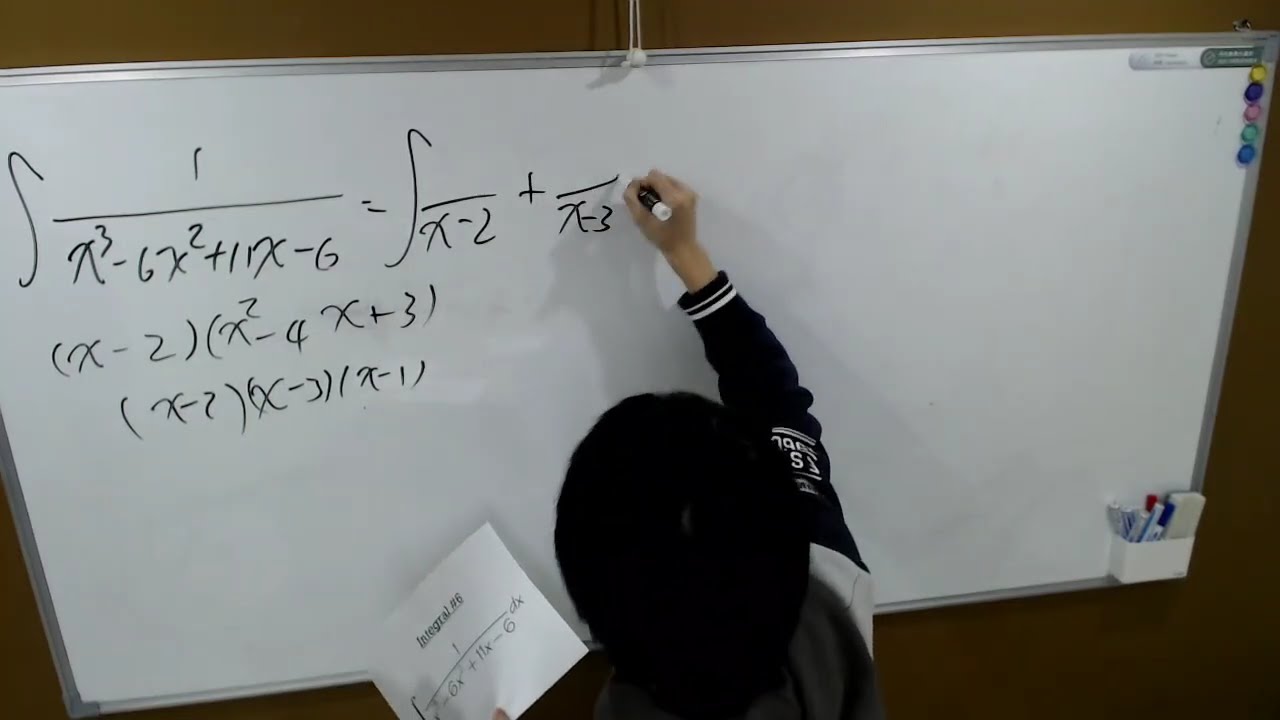 ∫ 1/(x³-6x²+11x-6) = ∫ /(x-2) + /(x-3)
(x-2)(x²-4x+3)
(x-2)(x-3)(x-1)
Integral #6
1
∫ ³-6x²+11x-6 dx